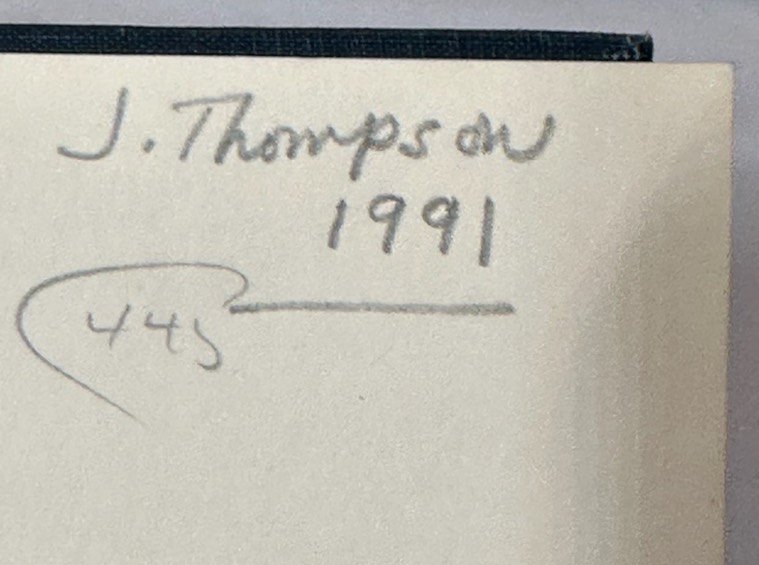 J. Thompson
1991
445